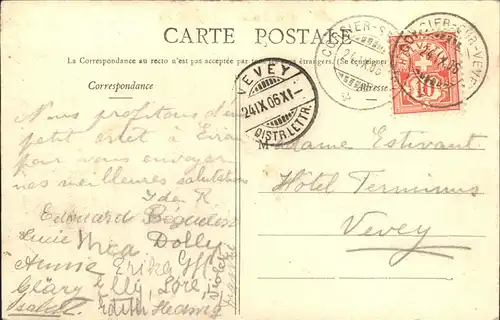 CARTE POSTALE
La Correspondance au recto n'est pas acceptée par tous les pays étrangers. (Se renseigner
Correspondance
Adresse
CORSIER-SUR-VEVEY
24.IX.06
VEVEY
24 IX 06 XI-
DISTR. LETTR.
HELVETIA
10
Nous profitons d'un
petit arrêt à
pour vous envoyer
nos meilleures salutations
Ida R
Edouard
Lucie Mica Dolly
Annie Erika
Cläry Elly, Lore,
Isabel. Edith Hedwig
Violet
Madame Estivant
Hôtel Terminus
Vevey